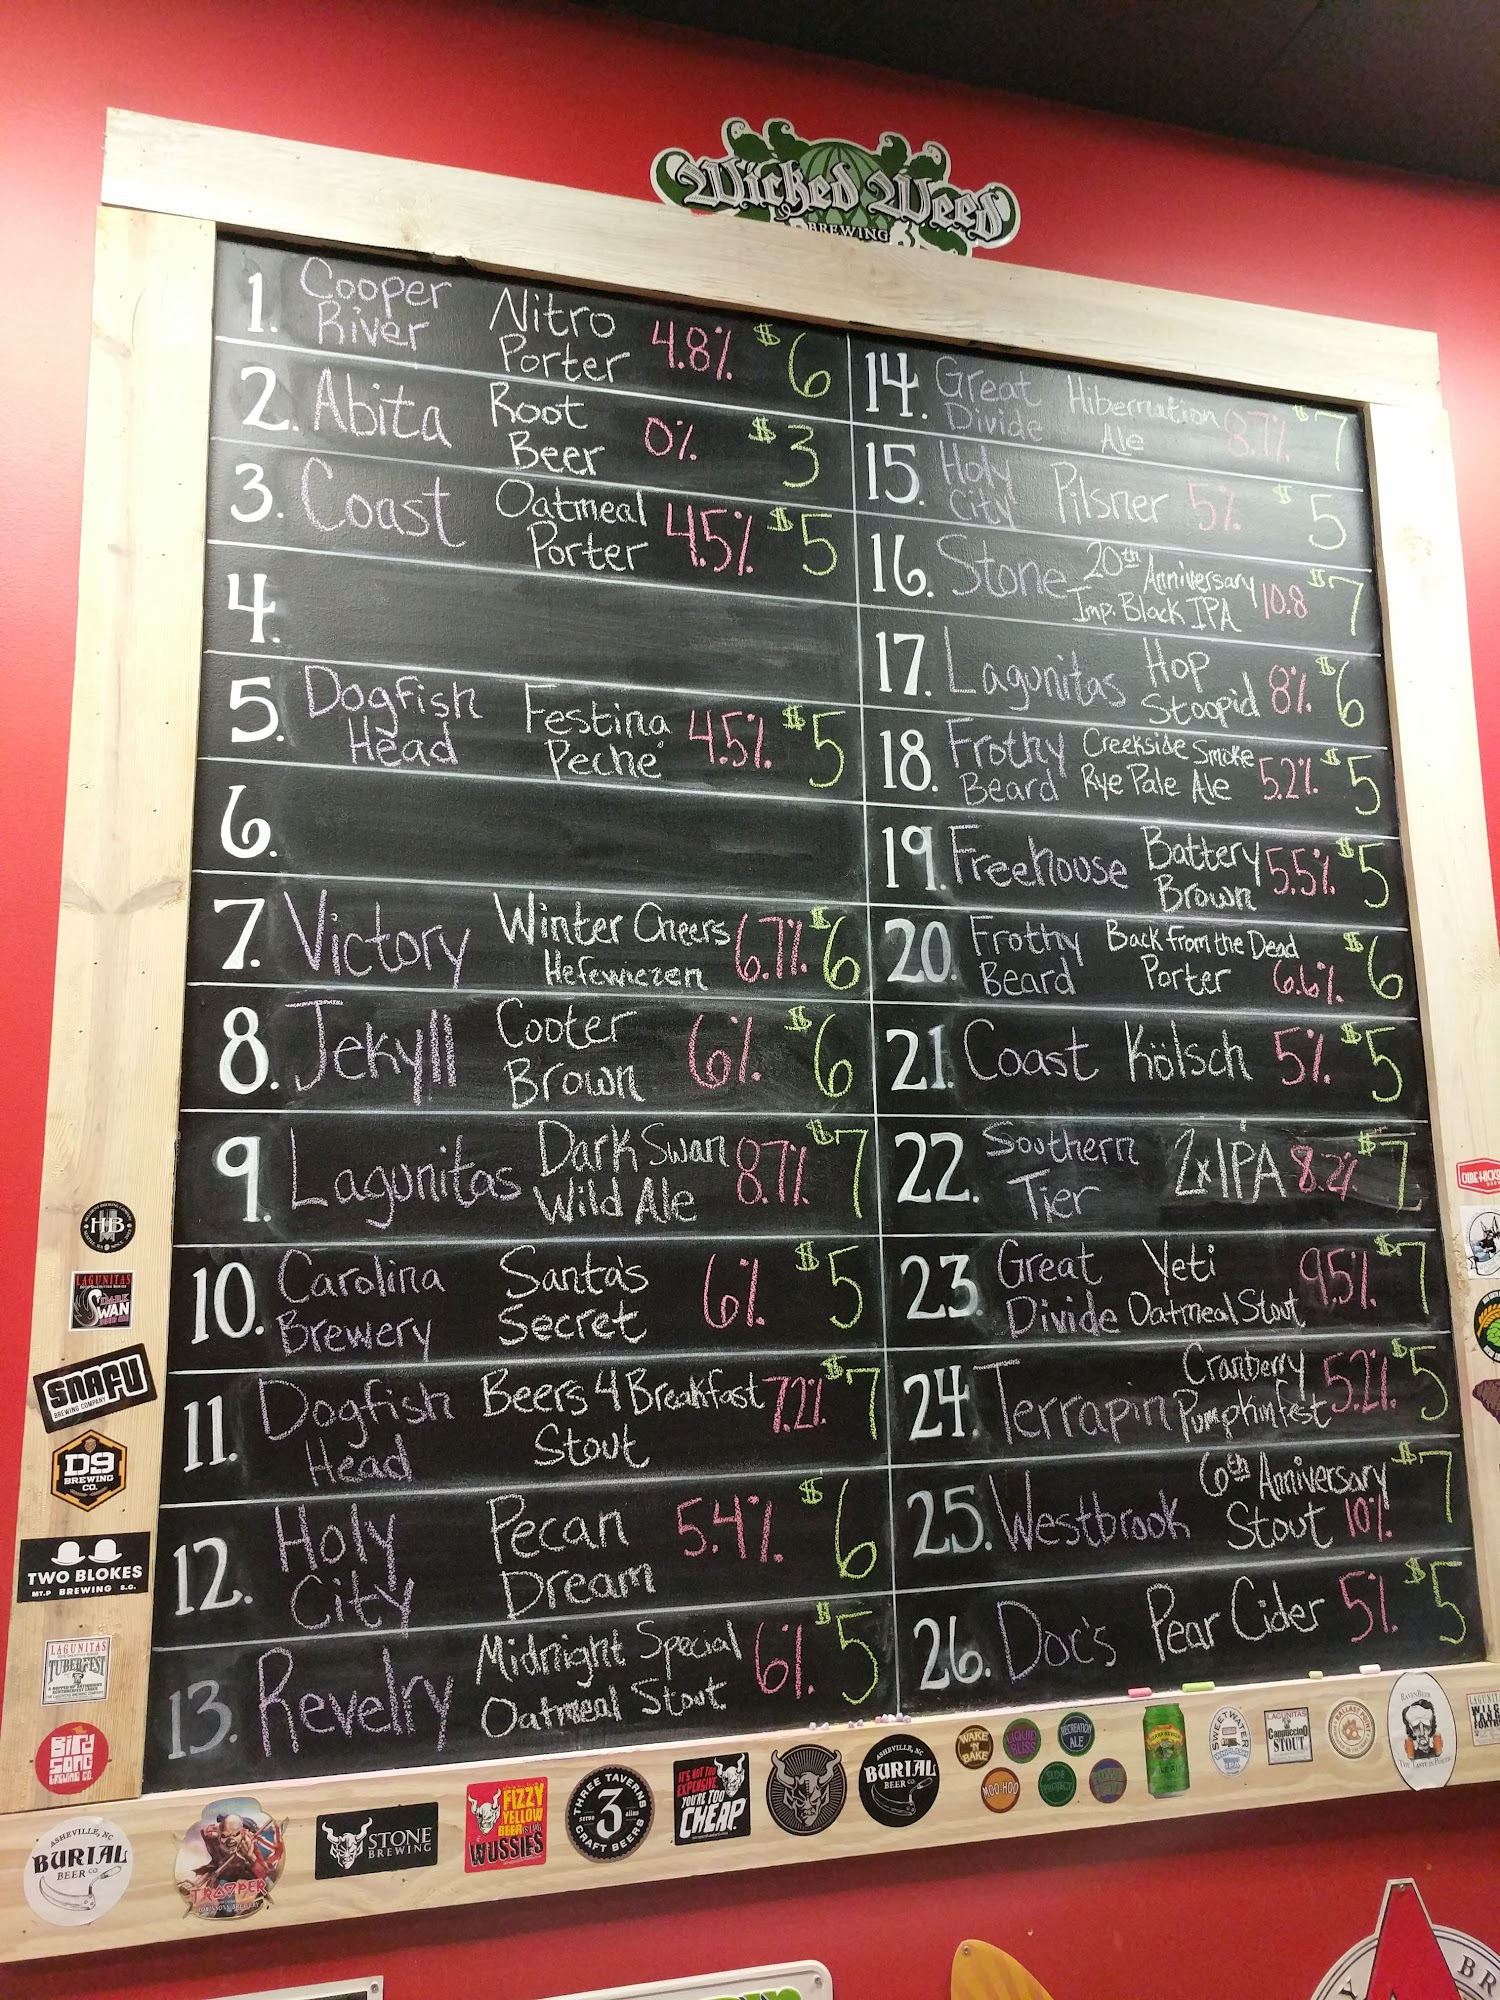 Wicked Weed
BREWING
1. Cooper River Nitro Porter 4.8% $6
2. Abita Root Beer 0% $3
3. Coast Oatmeal Porter 4.5% $5
4.
5. Dogfish Head Festina Peché 4.5% $5
6.
7. Victory Winter Cheers Hefewiezen 6.7% $6
8. Jekyll Cooter Brown 6% $6
9. Lagunitas Dark Swan Wild Ale 8.7% $7
10. Carolina Brewery Santa's Secret 6% $5
11. Dogfish Head Beers 4 Breakfast Stout 7.2% $7
12. Holy City Pecan Dream 5.4% $6
13. Revelry Midnight Special Oatmeal Stout 6% $5
14. Great Divide Hibernation Ale 8.7% $7
15. Holy City Pilsner 5% $5
16. Stone 20th Anniversary Imp. Black IPA 10.8 $7
17. Lagunitas Hop Stoopid 8% $6
18. Frothy Beard Creekside Smoke Rye Pale Ale 5.2% $5
19. Freehouse Battery Brown 5.5% $5
20. Frothy Beard Back from the Dead Porter 6.6% $6
21. Coast Kölsch 5% $5
22. Southern Tier 2xIPA 8.2% $7
23. Great Divide Yeti Oatmeal Stout 9.5% $7
24. Terrapin Cranberry Pumpkinfest 5.2% $5
25. Westbrook 6th Anniversary Stout 10% $7
26. Doc's Pear Cider 5% $5
HB
LAGUNITAS
DARK
SWAN
SNAFU
BREWING COMPANY
D9
BREWING
CO.
TWO BLOKES
MT.P BREWING S.C.
LAGUNITAS
TUBERFEST
BIRD
SONG
BREWING CO.
ASHEVILLE, NC
BURIAL
BEER CO
TROOPER
STONE
BREWING
FIZZY
YELLOW
BEER IS FOR
WUSSIES
THREE TAVERNS
3
CRAFT BEERS
IT'S NOT TOO
EXPENSIVE,
YOU'RE TOO
CHEAP
ASHEVILLE, NC
BURIAL
BEER CO
WAKE 'N BAKE
LIQUID BLISS
RECREATION ALE
MOO-HOO
SIDE PROJECT
SWEETWATER
LAGUNITAS
Cappuccino
STOUT
BALLAST POINT
RAVENBEER